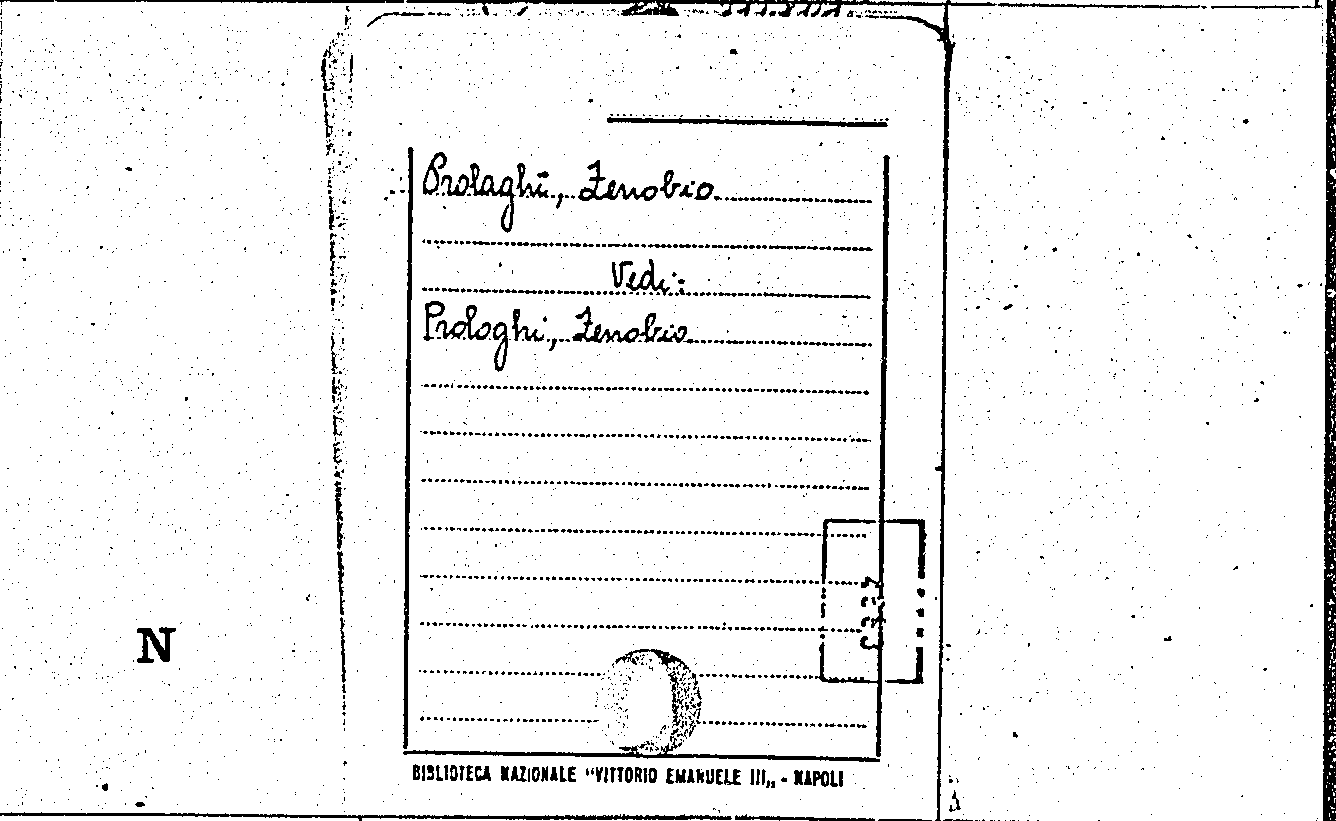 Prolaghi, Zenobio
Vedi:
Prologhi, Zenobio
N
BIBLIOTECA NAZIONALE "VITTORIO EMANUELE III„ - NAPOLI